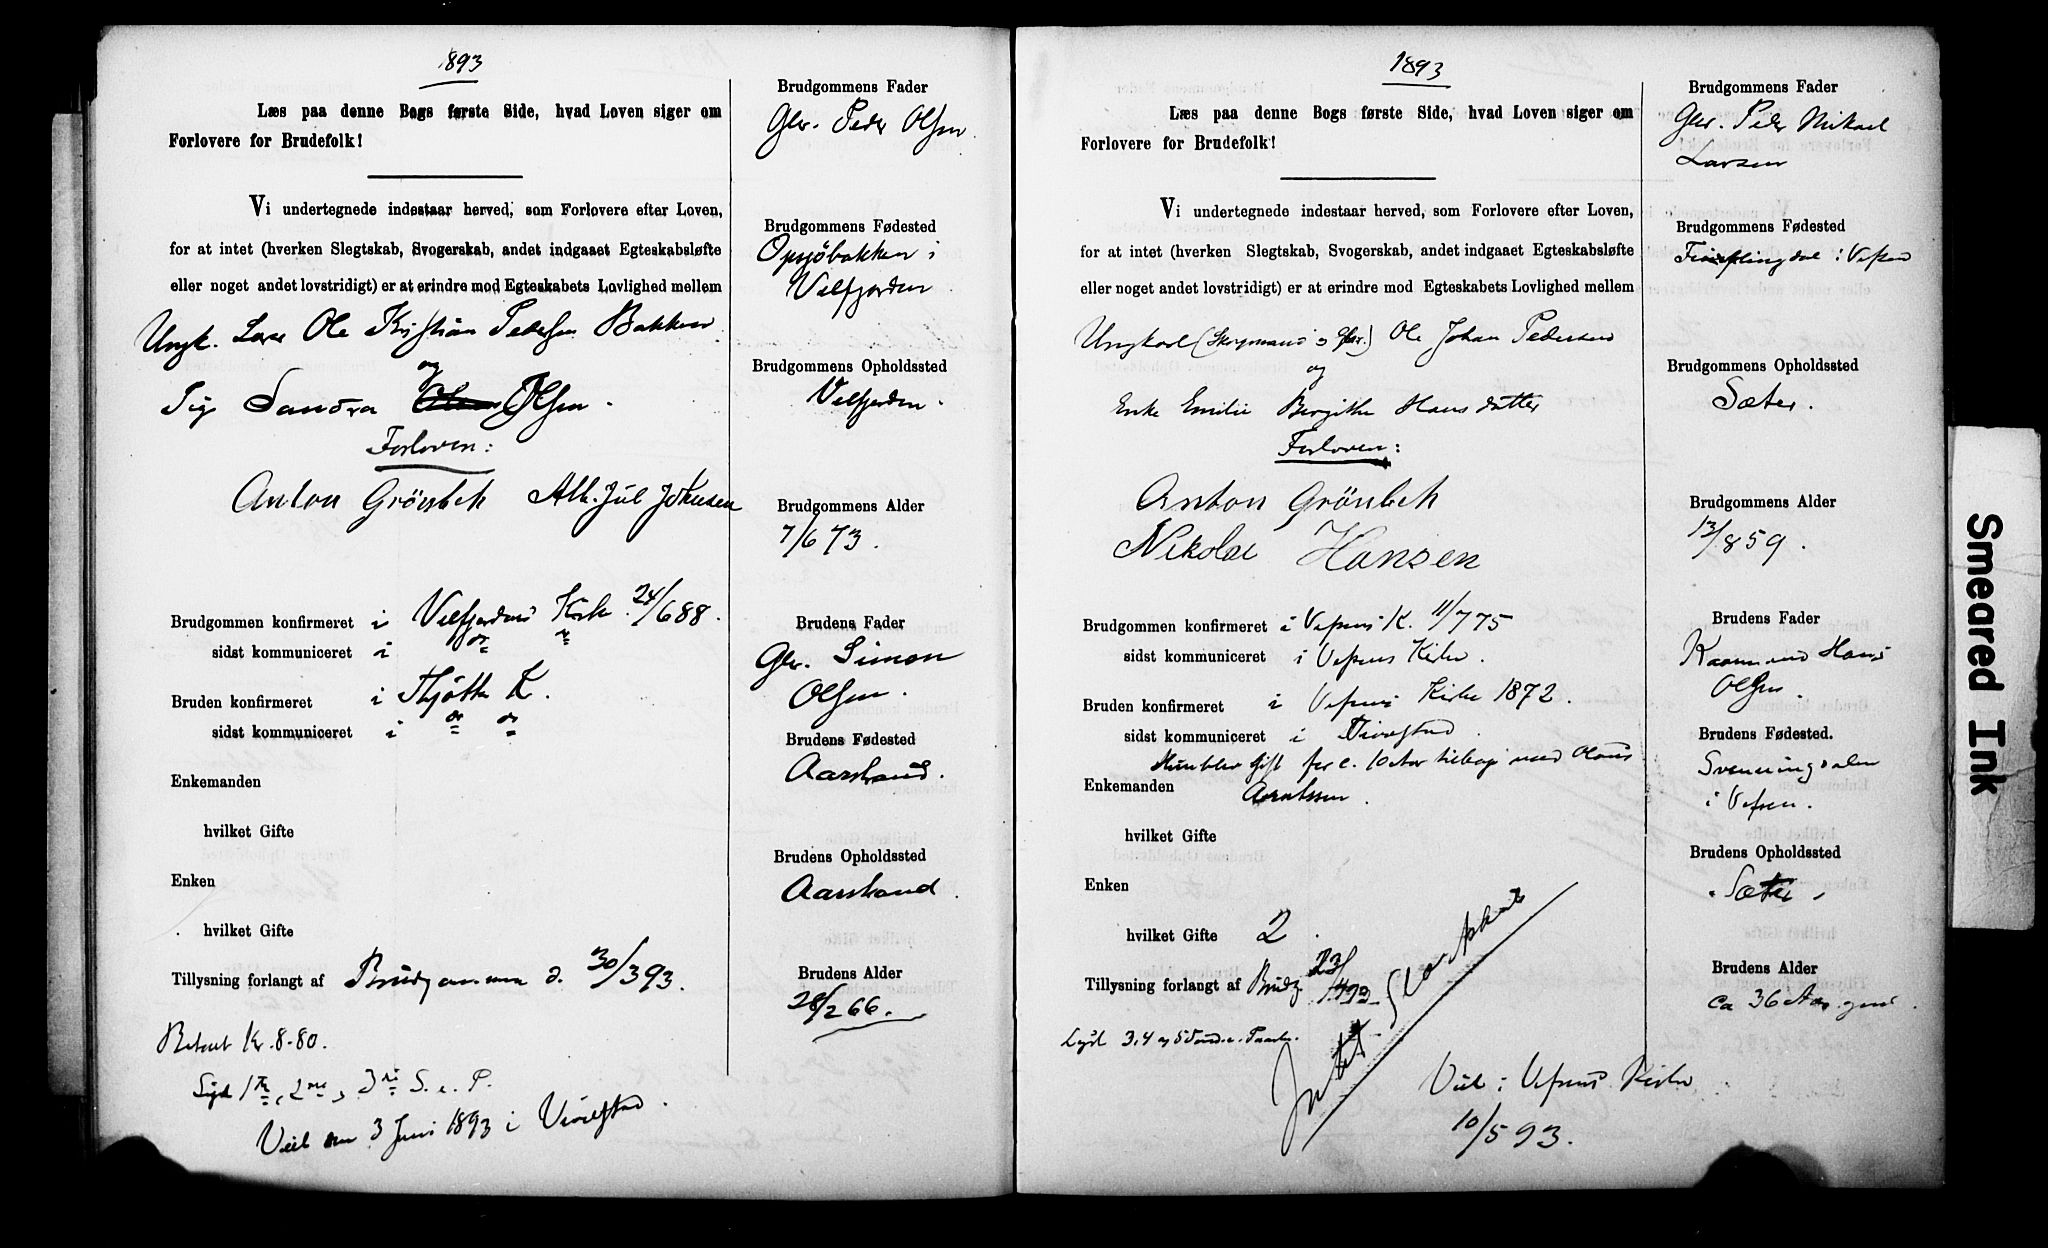 1893
Læs paa denne Bogs første Side, hvad Loven siger om
Forlovere for Brudefolk!
Vi undertegnede indestaar herved, som Forlovere efter Loven,
for at intet (hverken Slegtskab, Svogerskab, andet indgaaet Egteskabsløfte
eller noget andet lovstridigt) er at erindre mod Egteskabets Lovlighed mellem
Ungk. Ole Kristian Pedersen Bakken
og
Pige Sandra Olsen.
Forlovere:
Anton Grönbech Alb. Jul Johnsen
Brudgommen konfirmeret i Velfjordens Kirke 24/6 88.
sidst kommuniceret i do do
Bruden konfirmeret i Thjøtta K.
sidst kommuniceret i do do
Enkemanden
hvilket Gifte
Enken
hvilket Gifte
Tillysning forlangt af Brudgommen d. 30/3 93.
Betalt Kr. 8-80.
Lyst 1te, 2den, 3die S. e. P.
Viet den 3 Juni 1893 i Vivelstad.
Brudgommens Fader
Gbr. Peder Olsen.
Brudgommens Fødested
Opsjöbakken i
Velfjorden
Brudgommens Opholdssted
Velfjorden.
Brudgommens Alder
7/6 73.
Brudens Fader
Gbr. Simon
Olsen.
Brudens Fødested
Aarstrand.
Brudens Opholdssted
Aarstrand.
Brudens Alder
28/2 66.
1893
Læs paa denne Bogs første Side, hvad Loven siger om
Forlovere for Brudefolk!
Vi undertegnede indestaar herved, som Forlovere efter Loven,
for at intet (hverken Slegtskab, Svogerskab, andet indgaaet Egteskabsløfte
eller noget andet lovstridigt) er at erindre mod Egteskabets Lovlighed mellem
Ungkarl Ole Johan Pedersen
og
Enke Emilie Birgitte Hansdatter
Forlovere:
Anton Grönbech
Nikolai Hansen
Brudgommen konfirmeret i Vefsens K. 11/7 75
sidst kommuniceret i Vefsens Kirke.
Bruden konfirmeret i Vefsens Kirke 1872.
sidst kommuniceret i Vivelstad.
Hun blev gift for c. 10 Aar tilbage med Olaus
Enkemanden Arntssen.
hvilket Gifte
Enken
hvilket Gifte 2.
Tillysning forlangt af Brudg. 23/4 93
Lyst 3, 4 og 5 Sønd. e. Paaske.
Viet i Vefsens Kirke
10/5 93.
Brudgommens Fader
Gbr. Peder Mikael
Larsen
Brudgommens Fødested
i Vefsen
Brudgommens Opholdssted
Sæter.
Brudgommens Alder
13/8 59.
Brudens Fader
Hans
Olsen.
Brudens Fødested.
Svenningdalen
i Vefsen.
Brudens Opholdssted
Sæter
Brudens Alder
ca 36 Aar gml.
Smeared Ink